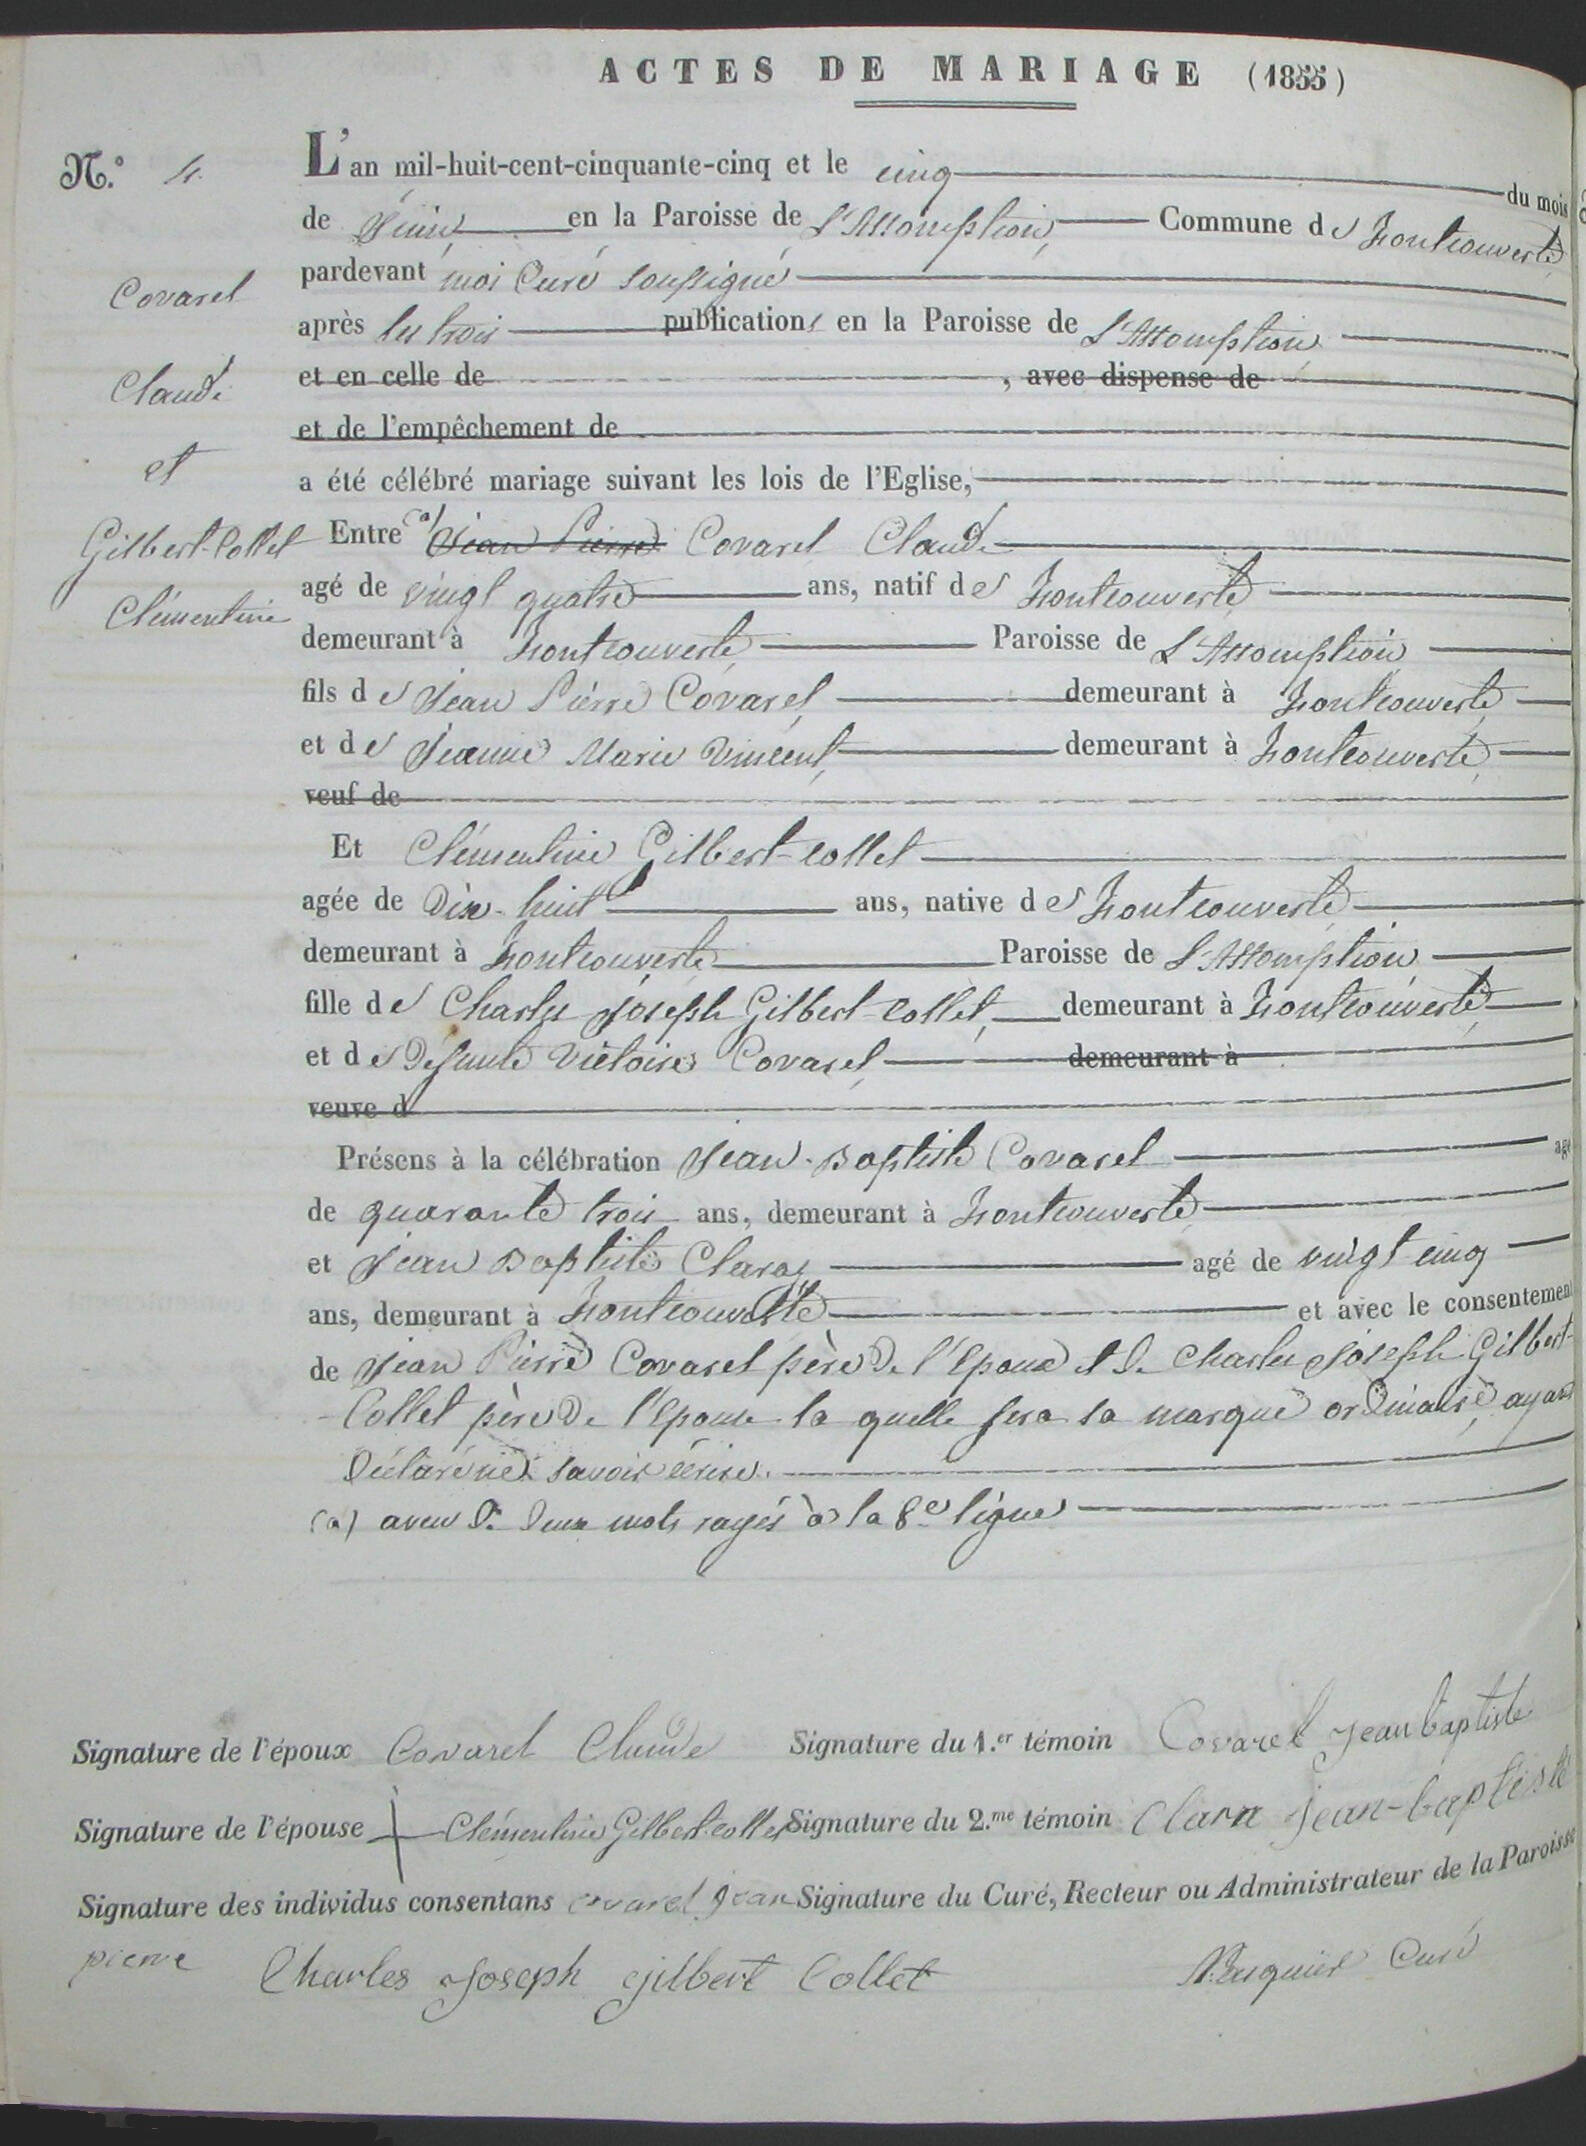 ACTES DE MARIAGE (1855)
N.° 4.
L'an mil-huit-cent-cinquante-cinq et le cinq du mois
de Juin en la Paroisse de L'Assomption Commune de Fontcouverte
pardevant moi Curé soussigné
après les trois publications en la Paroisse de L'Assomption
et en celle de , avec dispense de
et de l'empêchement de
a été célébré mariage suivant les lois de l'Eglise,
Covarel
Claude
et
Gilbert-Collet
Clémentine
Entre (a) Jean Pierre Covarel Claude
agé de vingt quatre ans, natif de Fontcouverte
demeurant à Fontcouverte Paroisse de L'Assomption
fils de Jean Pierre Covarel, demeurant à Fontcouverte
et de Jeanne Marie Vincent, demeurant à Fontcouverte
veuf de
Et Clémentine Gilbert-Collet
agée de Dix-huit ans, native de Fontcouverte
demeurant à Fontcouverte Paroisse de L'Assomption
fille de Charles Joseph Gilbert-Collet, demeurant à Fontcouverte
et de Defunte Victoire Covarel, demeurant à
veuve d
Présens à la célébration Jean-Baptiste Covarel agé
de quarante trois ans, demeurant à Fontcouverte
et Jean Baptiste Claraz agé de vingt cinq
ans, demeurant à Fontcouverte et avec le consentement
de Jean Pierre Covarel père De l'Epoux et De Charles Joseph Gilbert-
Collet père De l'Epouse la quelle fera sa marque ordinaire, ayant
Déclaré ne savoir écrire.
(a) aveu De Deux mots rayés à la 8e ligne
Signature de l'époux Covarel Claude
Signature du 1.er témoin Covarel Jean baptiste
Signature de l'épouse + Clémentine Gilbert-Collet
Signature du 2.me témoin Clara Jean-baptiste
Signature des individus consentans covarel Jean
pierre Charles Joseph Gilbert Collet
Signature du Curé, Recteur ou Administrateur de la Paroisse
Curé